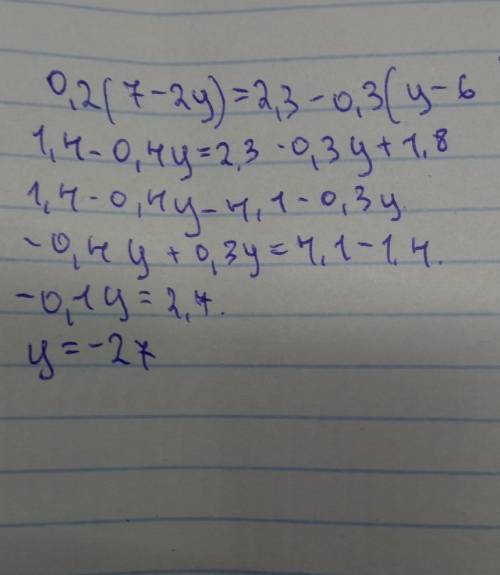 0,2(7-2y)=2,3-0,3(y-6
1,4-0,4y=2,3-0,3y+1,8
1,4-0,4y-4,1-0,3y.
-0,4y+0,3y=4,1-1,4.
-0,1y=2,7.
y=-27